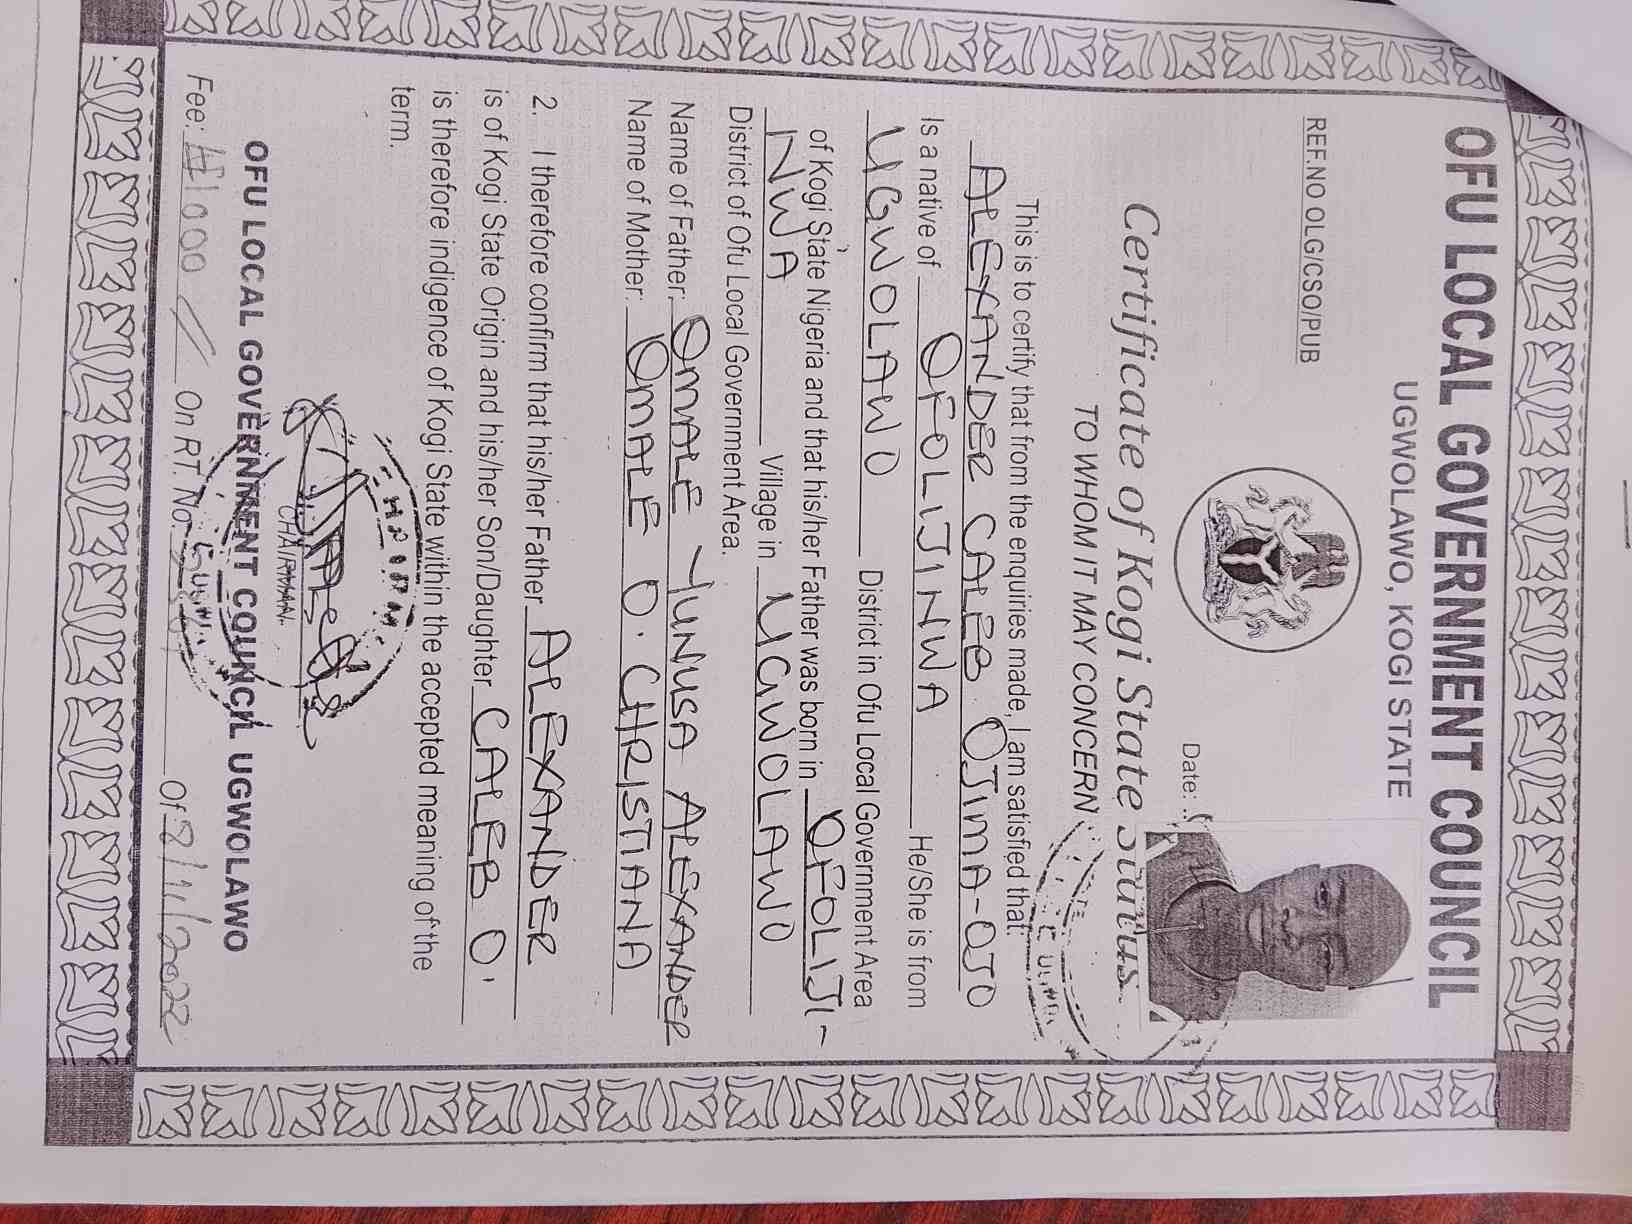 OFU LOCAL GOVERNMENT COUNCIL
UGWOLAWO, KOGI STATE
REF.NO OLG/CSO/PUB
Date:
Certificate of Kogi State Status
TO WHOM IT MAY CONCERN
This is to certify that from the enquiries made, I am satisfied that:
ALEXANDER CALEB OJIMA-OJO
Is a native of OFOLIJINWA He/She is from
UGWOLAWO District in Ofu Local Government Area
of Kogi State Nigeria and that his/her Father was born in OFOLIJI-
NWA Village in UGWOLAWO
District of Ofu Local Government Area.
Name of Father: OMALE YUNUSA ALEXANDER
Name of Mother: OMALE O. CHRISTIANA
2. I therefore confirm that his/her Father ALEXANDER
is of Kogi State Origin and his/her Son/Daughter CALEB O.
is therefore indigence of Kogi State within the accepted meaning of the
term.
CHAIRMAN.
OFU LOCAL GOVERNMENT COUNCIL UGWOLAWO
Fee: ₦1000 // On RT. No. Of 8/11/2022